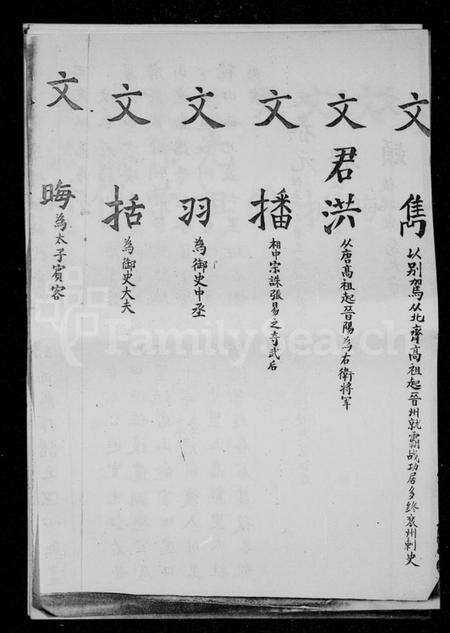 文 雋 以别駕从北齊高祖起晉州就霸战功居多终襄州剌史
文 君洪 从唐高祖起晉陽為右衛將軍
文 播 相中宗誅張易之等武后
文 羽 為御史中丞
文 括 為御史大夫
文 晦 為太子賓客
FamilySearch